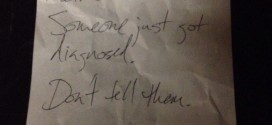 Someone just got
diagnosed.
Don't tell them.